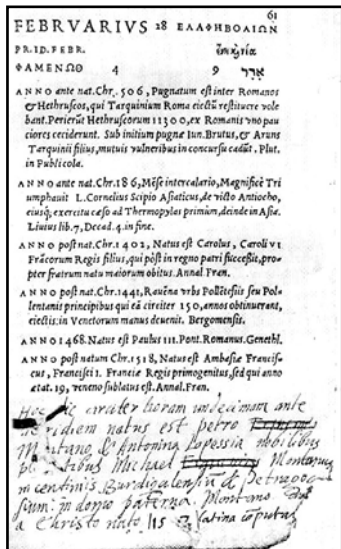 61
FEBRVARIVS 28 ΕΛΑΦΗΒΟΛΙΩΝ
PRID. FEBR.
ΦΑΜΕΝΩΘ 4 9 אדר
ANNO ante nat. Chr. 506, Pugnatum est inter Romanos
& Hethruscos, qui Tarquinium Roma eiectū restituere vole
bant. Perierūt Hethruscorum 11300, ex Romanis vno pau
ciores ceciderunt. Sub initium pugnæ Iun. Brutus, & Aruns
Tarquinii filius, mutuis vulneribus in concursu cadūt. Plut.
in Publicola.
ANNO ante nat. Chr. 186, Mēse intercalario, Magnificè Tri
umphauit L. Cornelius Scipio Asiaticus, de victo Antiocho,
eiusq; exercitu cæso ad Thermopylas primùm, deinde in Asia.
Liuius lib. 7, Decad. 4. in fine.
ANNO post nat. Chr. 1402, Natus est Carolus, Caroli VI
Frācorum Regis filius, qui pòst in regno patri successit, pro-
pter fratrum natu maiorum obitus. Annal. Fran.
ANNO post nat. Chr. 1441, Rauēna vrbs Pollētesiis seu Po-
lentanis principibus qui eā circiter 150, annos obtinuerant,
eiectis: in Venetorum manus deuenit. Bergomensis.
ANNO 1468. Natus est Paulus III. Pont. Romanus. Genethl.
ANNO post natum Chr. 1518, Natus est Ambasiæ Francis-
cus, Francisci 1. Franciæ Regis primogenitus, sed qui anno
ætat. 19, veneno sublatus est. Annal. Fran.
Hoc die circiter horam undecimam ante
meridiem natus est petro
Montano & Antonina Lopessia nobilibus
parentibus Michael Montanus
in confiniis Burdigalensium & Petragor
sium: in domo paterna. Montano
a Christo nato 1533 latina computa